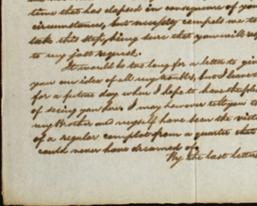 time that has elapsed in consequence of your
circumstances, but necessity compels me to
take this step, being sure that you will
to my just request.
It would be too long for a letter to give
your an idea of all my troubles, but I leave
for a future day when I hope to have the pl
of seeing you here. I may however tell you t
my Brother and myself have been the vict
of a regular complot from a quarter that
could never have dreamed of.
By the last letter